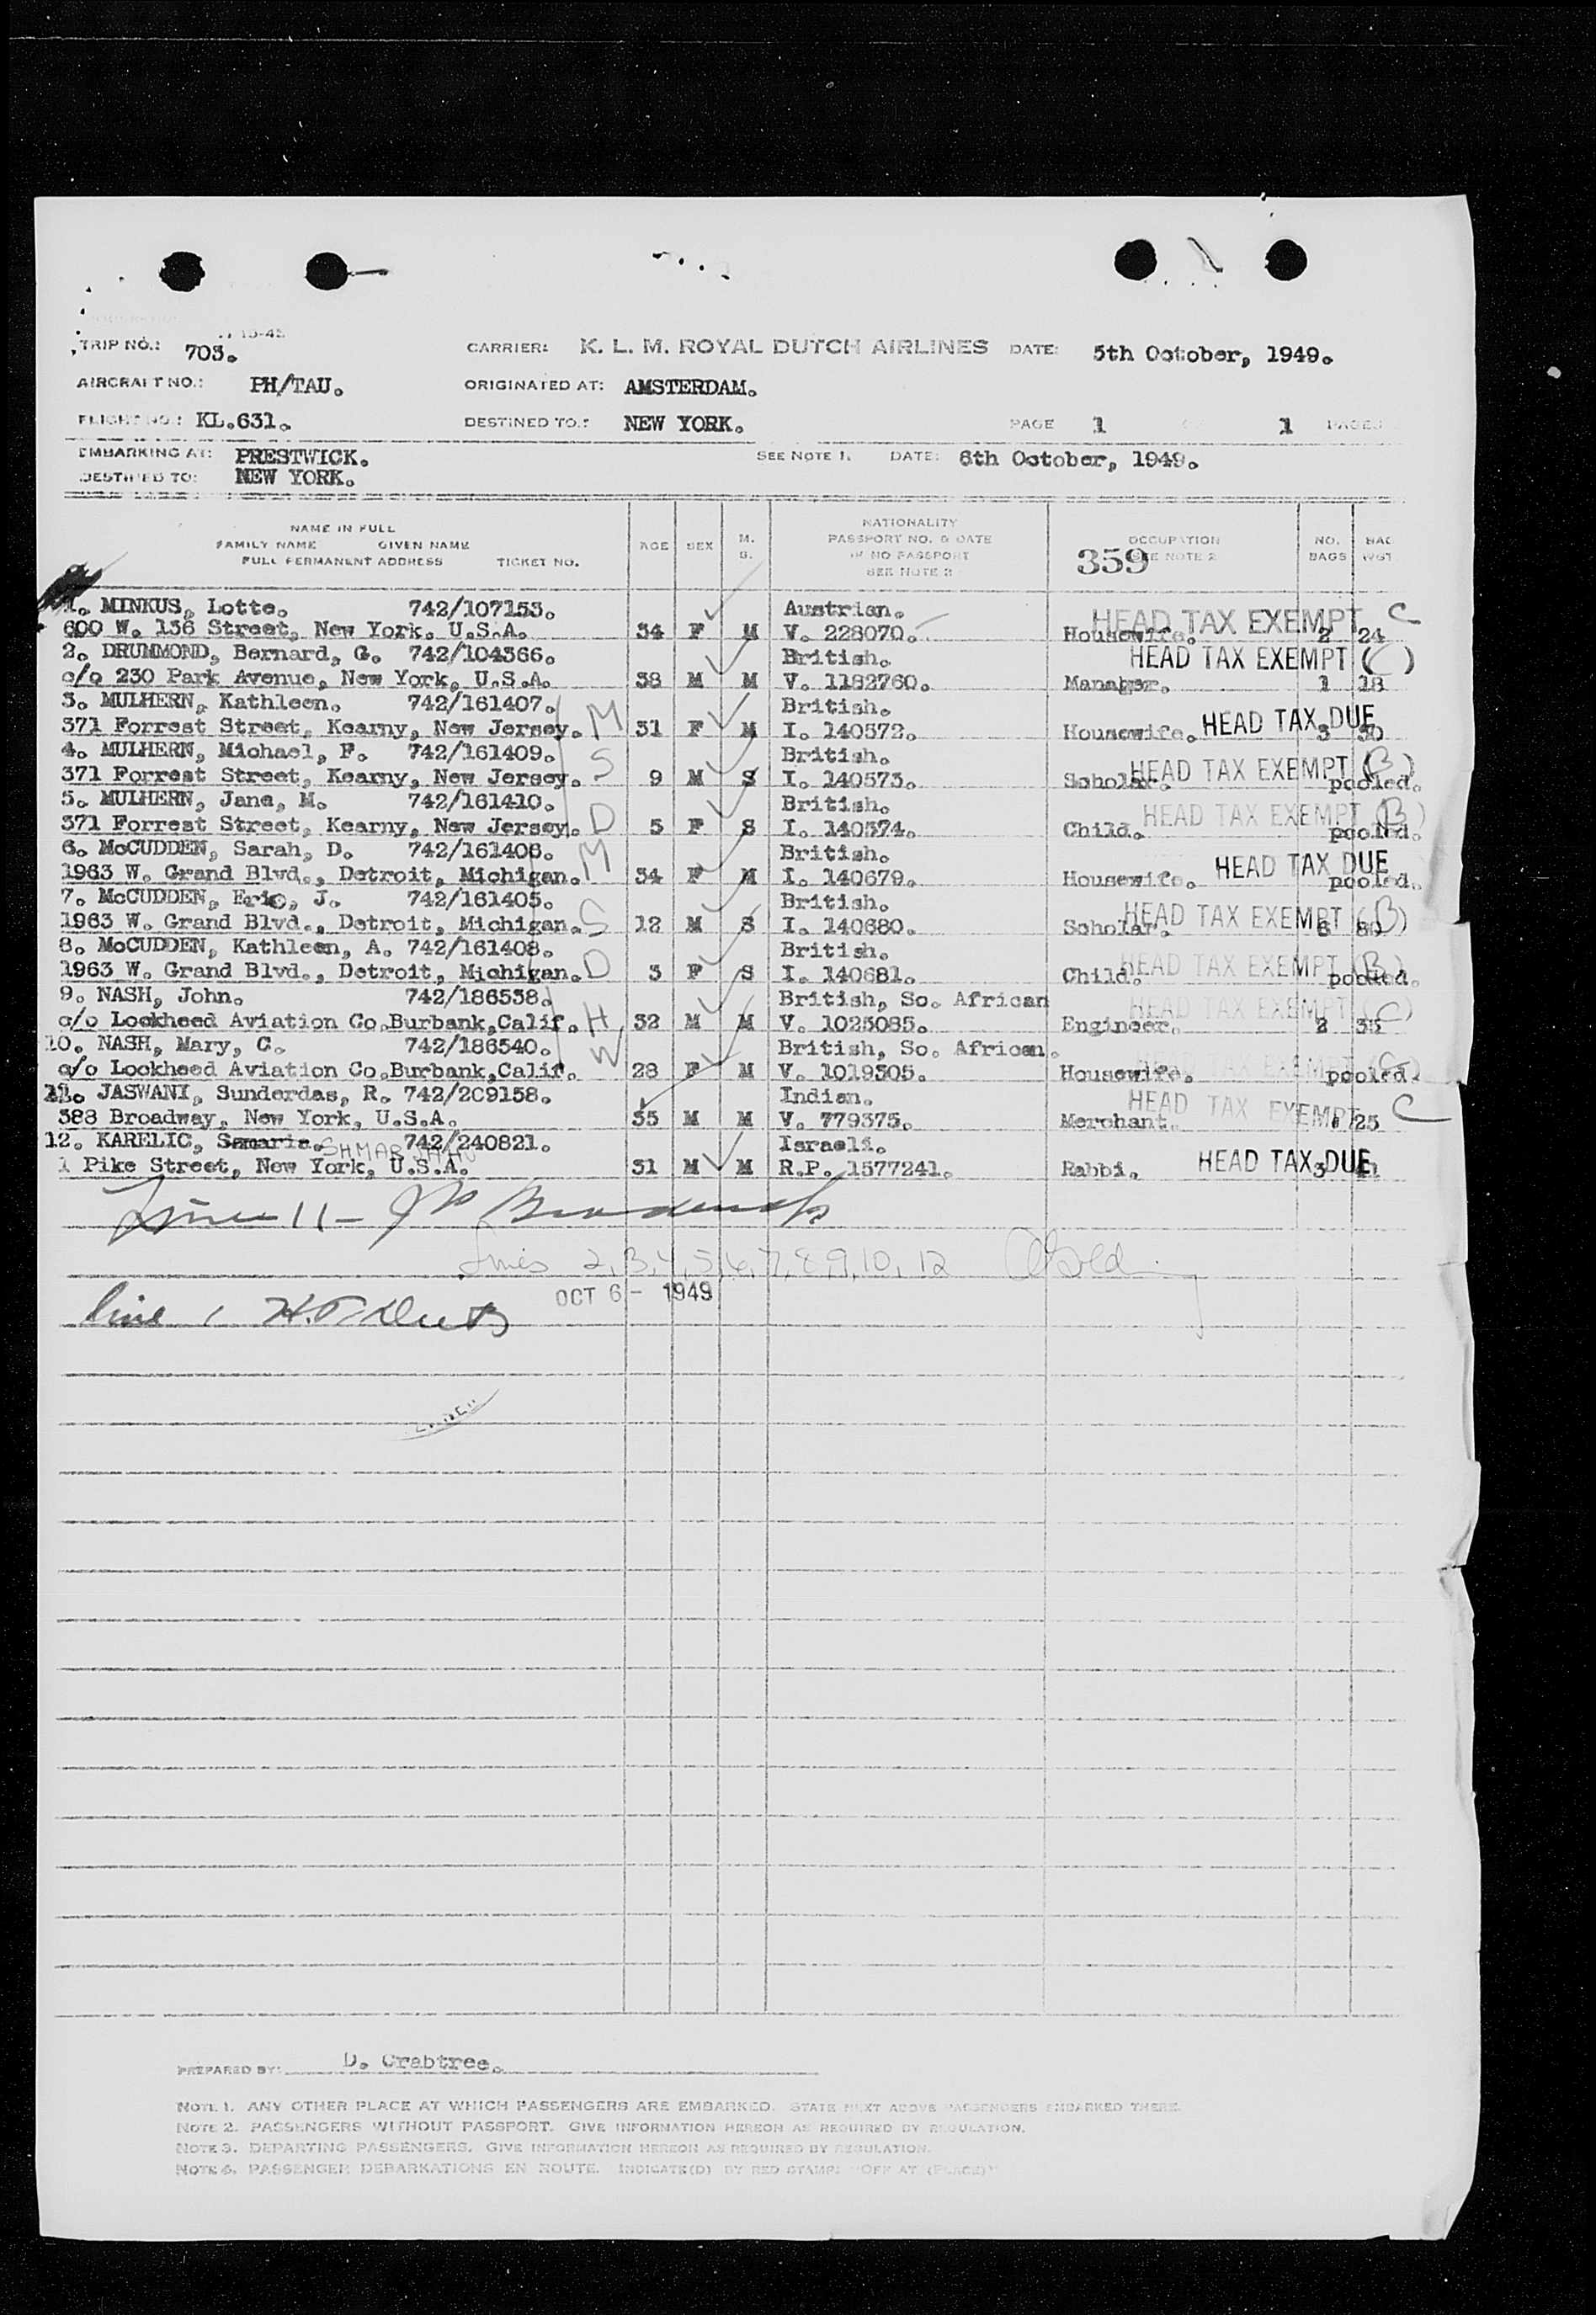 TRIP NO.: 703.
CARRIER: K. L. M. ROYAL DUTCH AIRLINES DATE: 5th October, 1949.
AIRCRAFT NO.: PH/TAU. ORIGINATED AT: AMSTERDAM.
FLIGHT NO.: KL.631. DESTINED TO: NEW YORK. PAGE 1 1 PAGES
EMBARKING AT: PRESTWICK. SEE NOTE 1. DATE: 6th October, 1949.
DESTINED TO: NEW YORK.
NAME IN FULL
FAMILY NAME GIVEN NAME
FULL PERMANENT ADDRESS TICKET NO.
AGE SEX M. S.
NATIONALITY
PASSPORT NO. & DATE
IF NO PASSPORT
SEE NOTE 2
OCCUPATION
SEE NOTE 2
359
NO. BAGS
BAG WGT
1. MINKUS, Lotte. 742/107153. Austrian. HEAD TAX EXEMPT C
600 W. 136 Street, New York. U.S.A. 34 F M V. 228070. Housewife. 2 24
2. DRUMMOND, Bernard, G. 742/104366. British. HEAD TAX EXEMPT (C)
c/o 230 Park Avenue, New York, U.S.A. 38 M M V. 1182760. Manager. 1 18
3. MULHERN, Kathleen. 742/161407. British.
371 Forrest Street, Kearny, New Jersey. M 31 F M I. 140572. Housewife. HEAD TAX DUE 3 30
4. MULHERN, Michael, F. 742/161409. British.
371 Forrest Street, Kearny, New Jersey. S 9 M S I. 140573. Scholar. HEAD TAX EXEMPT (B) pooled.
5. MULHERN, Jane, M. 742/161410. British.
371 Forrest Street, Kearny, New Jersey. D 5 F S I. 140574. Child. HEAD TAX EXEMPT (B) pooled.
6. McCUDDEN, Sarah, D. 742/161406. British.
1963 W. Grand Blvd., Detroit, Michigan. M 34 F M I. 140679. Housewife. HEAD TAX DUE pooled.
7. McCUDDEN, Eric, J. 742/161405. British.
1963 W. Grand Blvd., Detroit, Michigan. S 12 M S I. 140680. Scholar. HEAD TAX EXEMPT (B) 6 80
8. McCUDDEN, Kathleen, A. 742/161408. British.
1963 W. Grand Blvd., Detroit, Michigan. D 3 F S I. 140681. Child. HEAD TAX EXEMPT (B) pooled.
9. NASH, John. 742/186538. British, So. African
c/o Lockheed Aviation Co.Burbank,Calif. H 32 M M V. 1025085. Engineer. HEAD TAX EXEMPT (C) 2 35
10. NASH, Mary, C. 742/186540. British, So. African.
c/o Lockheed Aviation Co.Burbank,Calif. W 28 F M V. 1019305. Housewife. HEAD TAX EXEMPT (C) pooled.
11. JASWANI, Sunderdas, R. 742/209158. Indian. HEAD TAX EXEMPT C
388 Broadway, New York, U.S.A. 35 M M V. 779375. Merchant. 1 25
12. KARELIC, 742/240821. Israeli.
1 Pike Street, New York, U.S.A. 31 M M R.P. 1577241. Rabbi. HEAD TAX DUE 3
Line 11 -
Lines 2,3,4,5,6,7,8,9,10,12
OCT 6 - 1949
line 1
PREPARED BY: D. Crabtree.
NOTE 1. ANY OTHER PLACE AT WHICH PASSENGERS ARE EMBARKED. STATE NEXT ABOVE PASSENGERS EMBARKED THERE.
NOTE 2. PASSENGERS WITHOUT PASSPORT. GIVE INFORMATION HEREON AS REQUIRED BY REGULATION.
NOTE 3. DEPARTING PASSENGERS. GIVE INFORMATION HEREON AS REQUIRED BY REGULATION.
NOTE 4. PASSENGER DEBARKATIONS EN ROUTE. INDICATE(D) BY RED STAMP: "OFF AT (PLACE)"